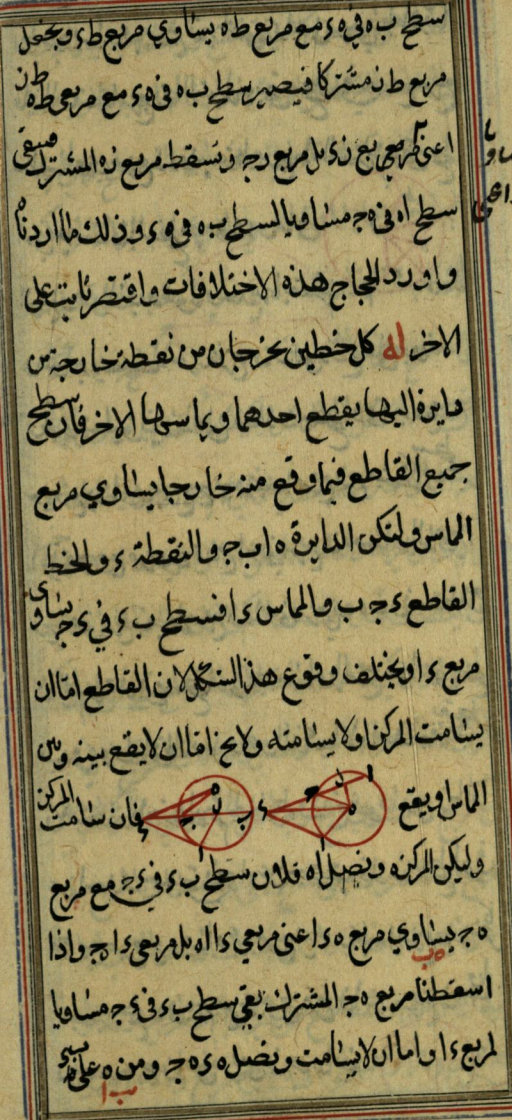 سطح ب ه في ه ء مع مربع ط ه يساوي مربع ط ء ونجعل
مربع ط ز مشتركا فيصير سطح ب ه في ه ء مع مربعي ط ه ط ز
اعني مربع ز ء بل مربع ز ج ونسقط مربع ز ه المشترك فيبقى
سطح ا ه في ه ج مساويا لسطح ب ه في ه ء وذلك ما اردناه
واورد الحجاج هذه الاختلافات واقتصر ثابت على
الاخر له كل خطين يخرجان من نقطة خارجة من
دايرة اليها يقطع احدهما ويماسها الاخر فان سطح
جميع القاطع فيما وقع منه خارجا يساوي مربع
المماس ولتكن الدايرة ه ا ب ج والنقطة ء والخط
القاطع ء ج ب والمماس ء ا فسطح ب ء في ء ج يساوي
مربع ء ا ويختلف وقوع هذا الشكل لان القاطع اما ان
يسامت المركز او لا يسامته ولا يخ اما ان لا يقع بينه وبين
المماس او يقع فان سامت المركز
وليكن المركز ه ونصل ا ه فلان سطح ب ء في ء ج مع مربع
ه ج يساوي مربع ه ء اعني مربعي ء ا ا ه بل مربعي ء ا ه ج واذا
اسقطنا مربع ه ج المشترك بقي سطح ب ء في ء ج مساويا
لمربع ء ا واما ان لا يسامت ونصل ه ء ه ج ومن ه على